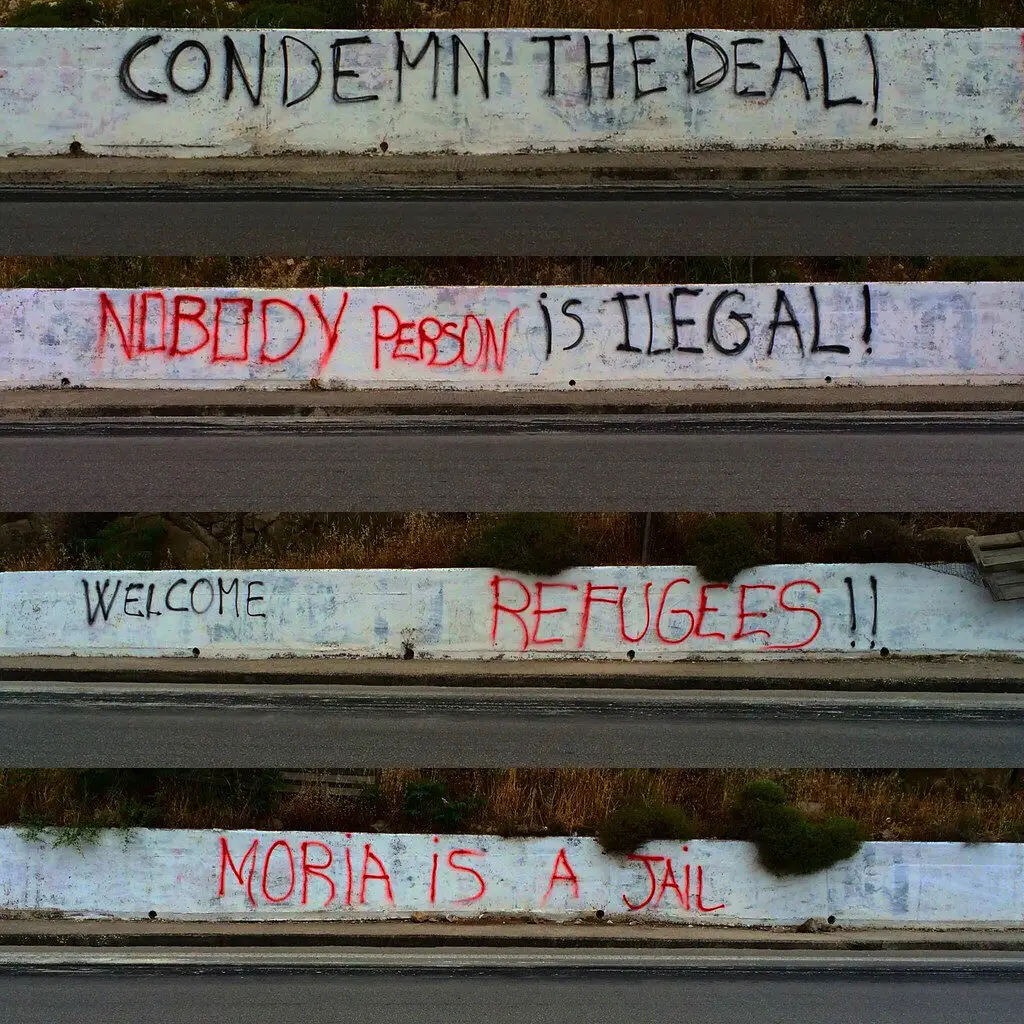 CONDEMN THE DEAL!
NOBODY PERSON iS ILEGAL!
WELCOME REFUGEES!!
MORiA iS A JAiL